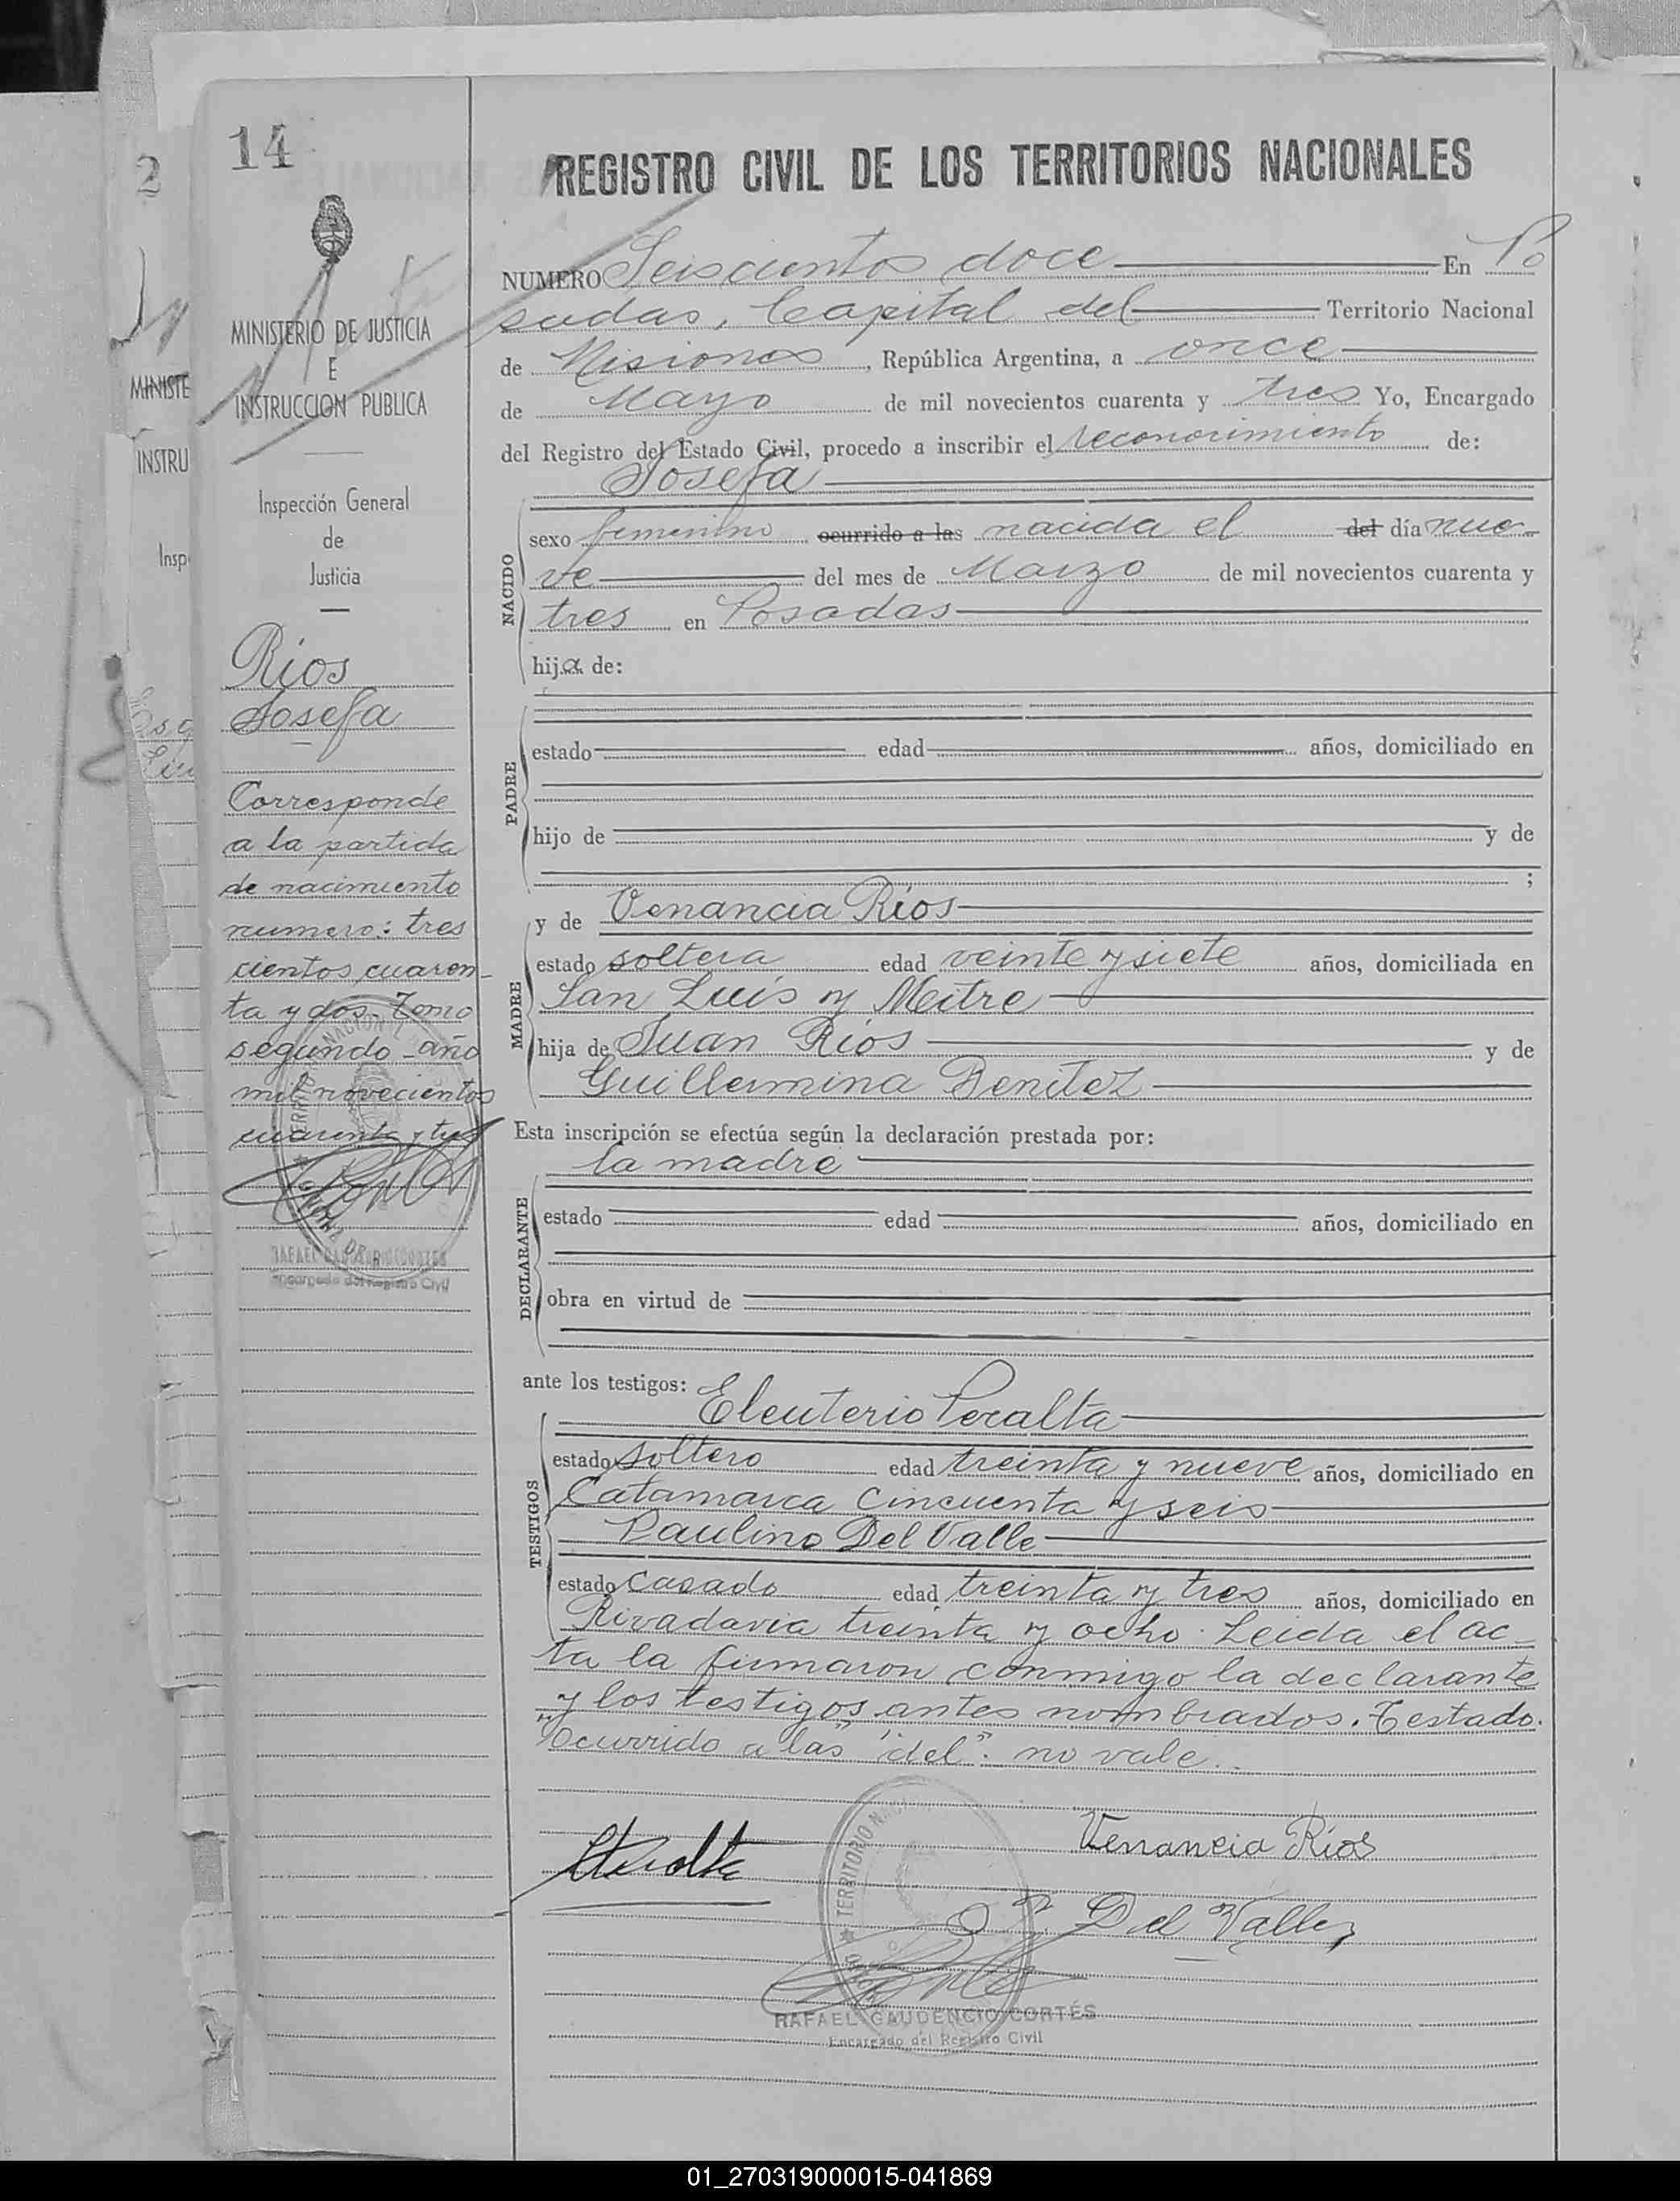 2
14
REGISTRO CIVIL DE LOS TERRITORIOS NACIONALES
MINISTERIO DE JUSTICIA
E
INSTRUCCION PUBLICA
Inspección General
de
Justicia
Rios
Josefa
Corresponde
a la partida
de nacimiento
numero: tres
cientos cuaren-
ta y dos- Tomo
segundo - año
mil novecientos
cuarenta y tres
RAFAEL GAUDENCIO CORTÉS
Encargado del Registro Civil
MINISTE
INSTRU
Insp
NUMERO Seiscientos doce En Po
sadas, Capital del Territorio Nacional
de Misiones, República Argentina, a once
de Mayo de mil novecientos cuarenta y tres Yo, Encargado
del Registro del Estado Civil, procedo a inscribir el reconocimiento de:
Josefa
NACIDO
sexo femenino ocurrido a las nacida el del día nue-
ve del mes de Marzo de mil novecientos cuarenta y
tres en Posadas
hija de:
PADRE
estado edad años, domiciliado en
hijo de y de
;
MADRE
y de Venancia Ríos
estado soltera edad veinte y siete años, domiciliada en
San Luis y Mitre
hija de Juan Rios y de
Guillermina Benitez
Esta inscripción se efectúa según la declaración prestada por:
la madre
DECLARANTE
estado edad años, domiciliado en
obra en virtud de
ante los testigos:
Eleuterio Peralta
TESTIGOS
estado soltero edad treinta y nueve años, domiciliado en
Catamarca cincuenta y seis
Paulino Del Valle
estado casado edad treinta y tres años, domiciliado en
Rivadavia treinta y ocho. Leida el ac-
ta la firmaron conmigo la declarante
y los testigos antes nombrados. Testado.
"Ocurrido a las" "del": no vale.
Venancia Ríos
P. Del Valle
TERRITORIO NAC
RAFAEL GAUDENCIO CORTÉS
Encargado del Registro Civil
01_270319000015-041869